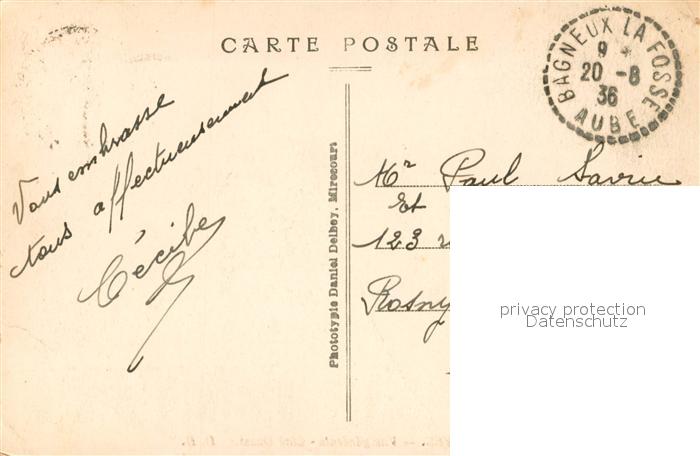 CARTE POSTALE
BAGNEUX LA FOSSE
9
20 -8
36
AUBE
Vous embrasse
tous affectueusement
Cécile
Phototypie Daniel Delbey, Mirecourt
Mr Paul
Et
123
Rosny
privacy protection
Datenschutz